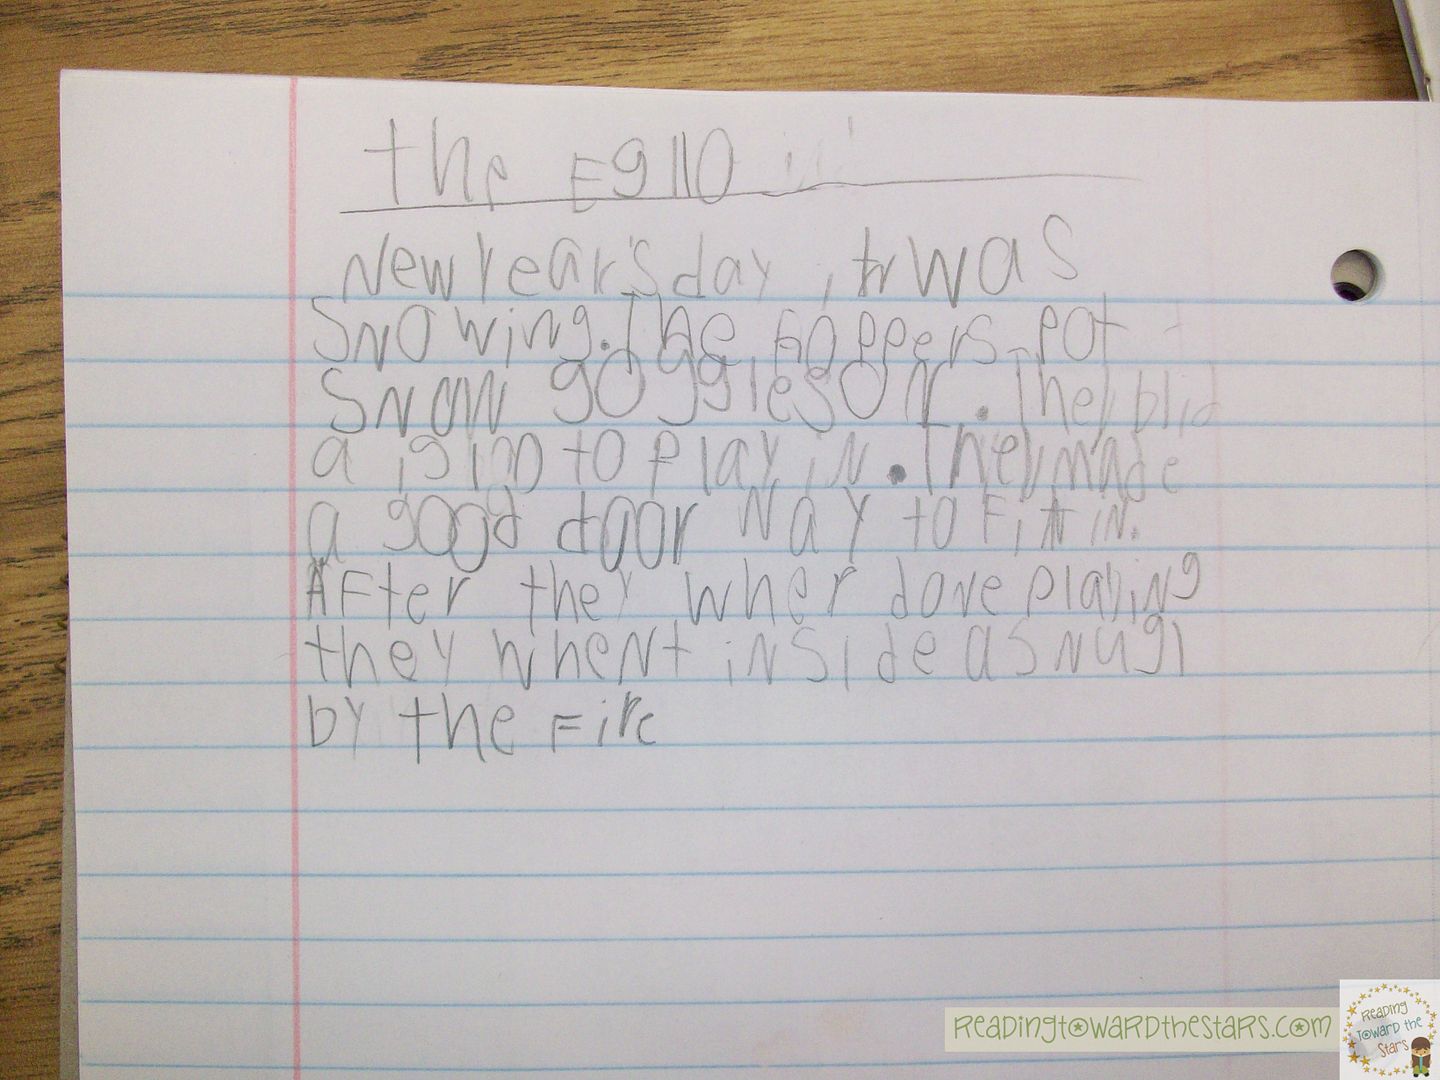 the Egllo
New Year's day, it was
Snowing. The Goppers pot
Snow goggles on. They blid
a igloo to play in. They made
a good door way to Fitt in.
AFter they wher done playing
they whent inside a snugl
by the Fire
ReadingtowardtheStars.com
Reading
Toward the
Stars